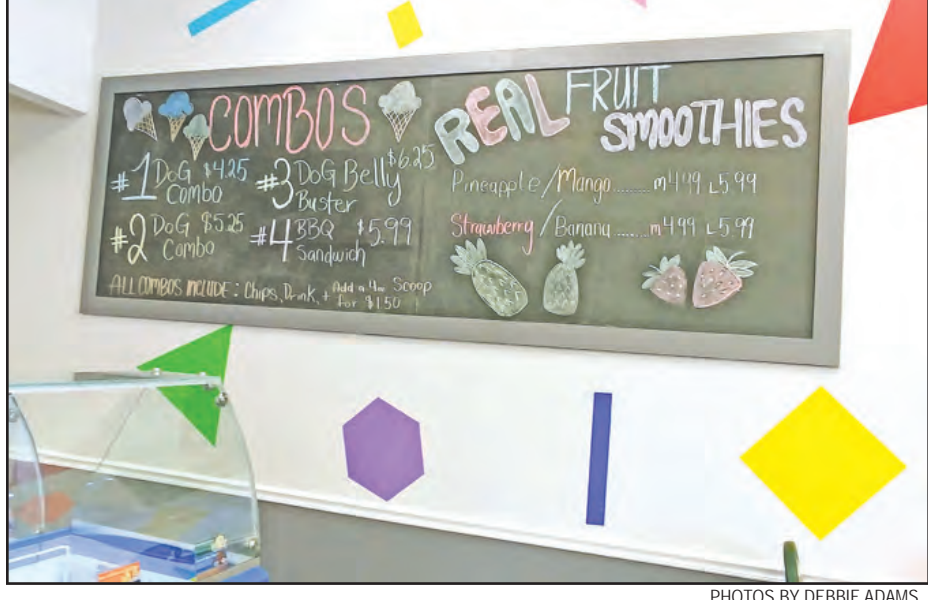 COMBOS
#1 DoG Combo $4.25
#2 DoG Combo $5.25
#3 DoG Belly Buster $6.25
#4 BBQ Sandwich $5.99
ALL COMBOS INCLUDE: Chips, Drink, +
Add a Scoop
for $1.50
REAL FRUIT
SMOOTHIES
Pineapple/Mango........ m4.99 L5.99
Strawberry/Banana........m4.99 L5.99
PHOTOS BY DEBBIE ADAMS